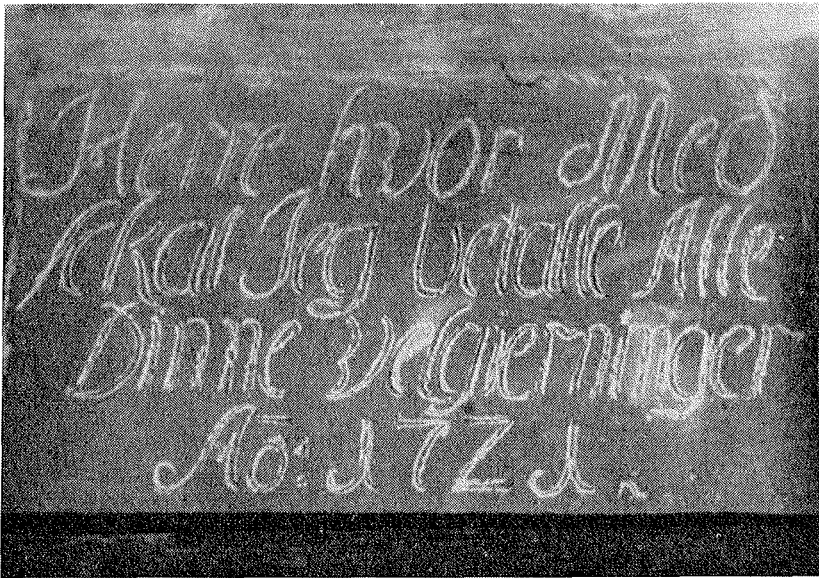 Herre hvor Med
sckal Jeg betalle Alle
Dinne velgierninger
Aō: 1721.